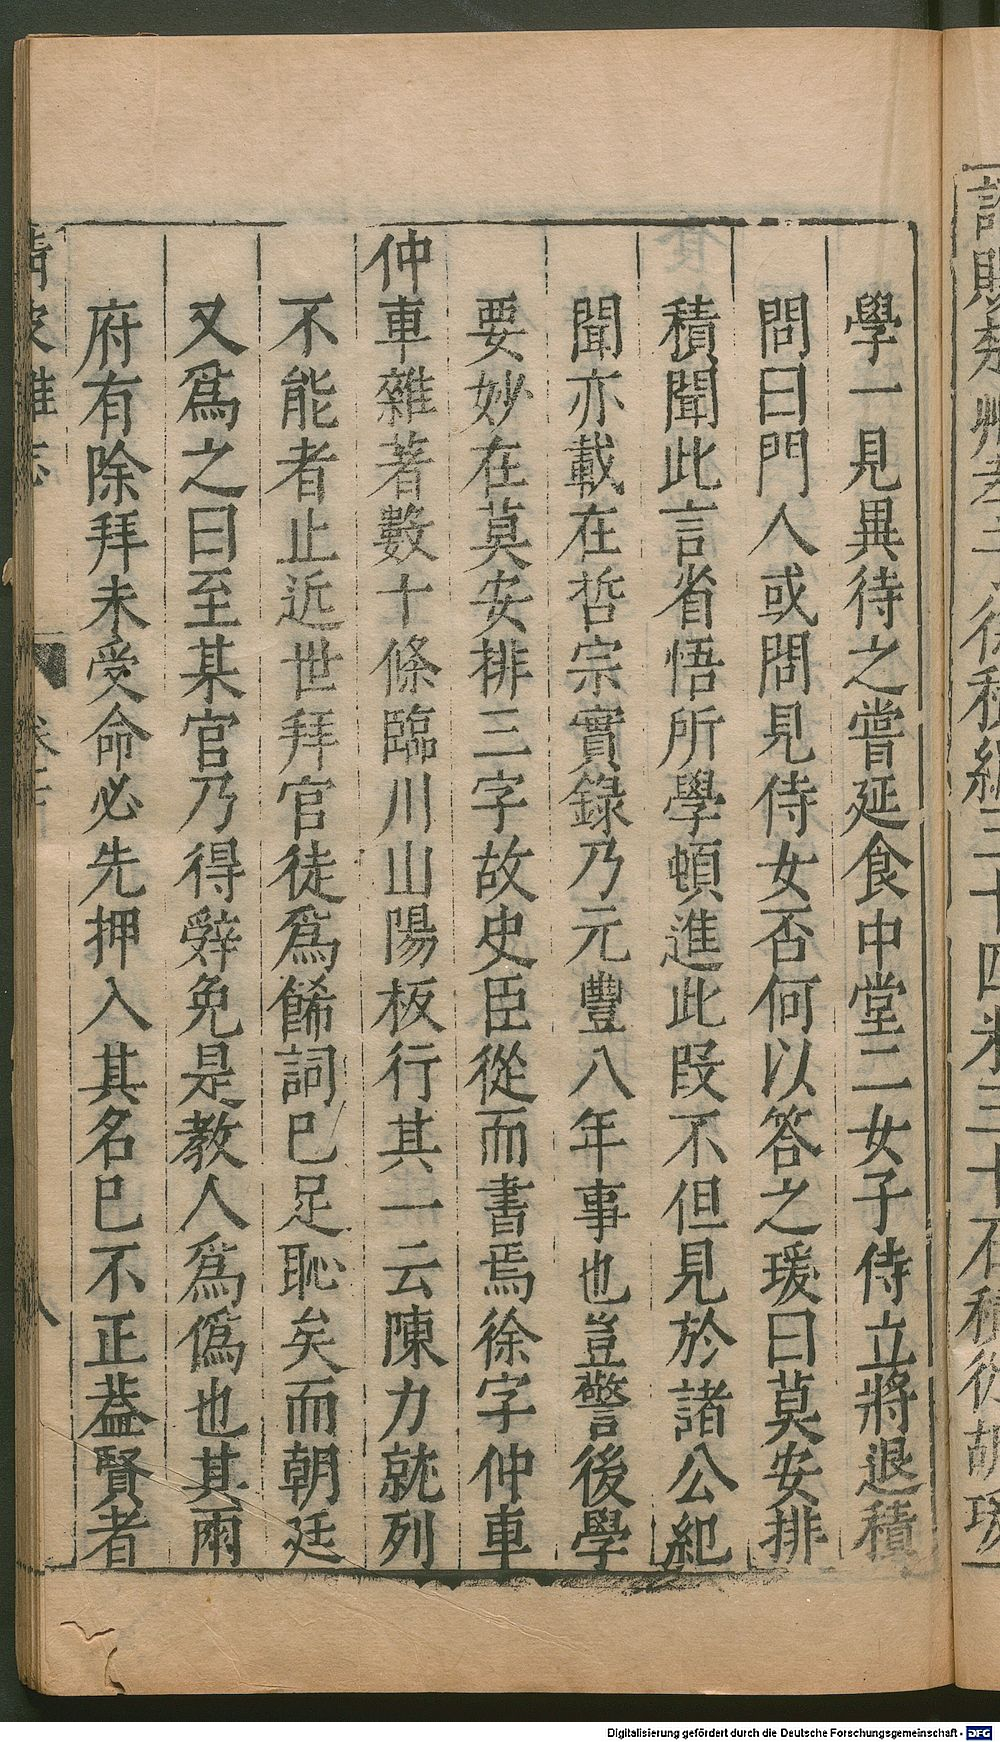 學一見異待之嘗延食中堂二女子侍立將退積
問曰門人或問見侍女否何以答之瑗曰莫安排
積聞此言省悟所學頓進此段不但見於諸公紀
聞亦載在哲宗實錄乃元豐八年事也豈警後學
要妙在莫安排三字故史臣從而書焉徐字仲車
仲車雜著數十條臨川山陽板行其一云陳力就列
不能者止近世拜官徒爲餙詞巳足恥矣而朝廷
又爲之曰至某官乃得辭免是教人爲僞也其兩
府有除拜未受命必先押入其名巳不正葢賢者
Digitalisierung gefördert durch die Deutsche Forschungsgemeinschaft - DFG